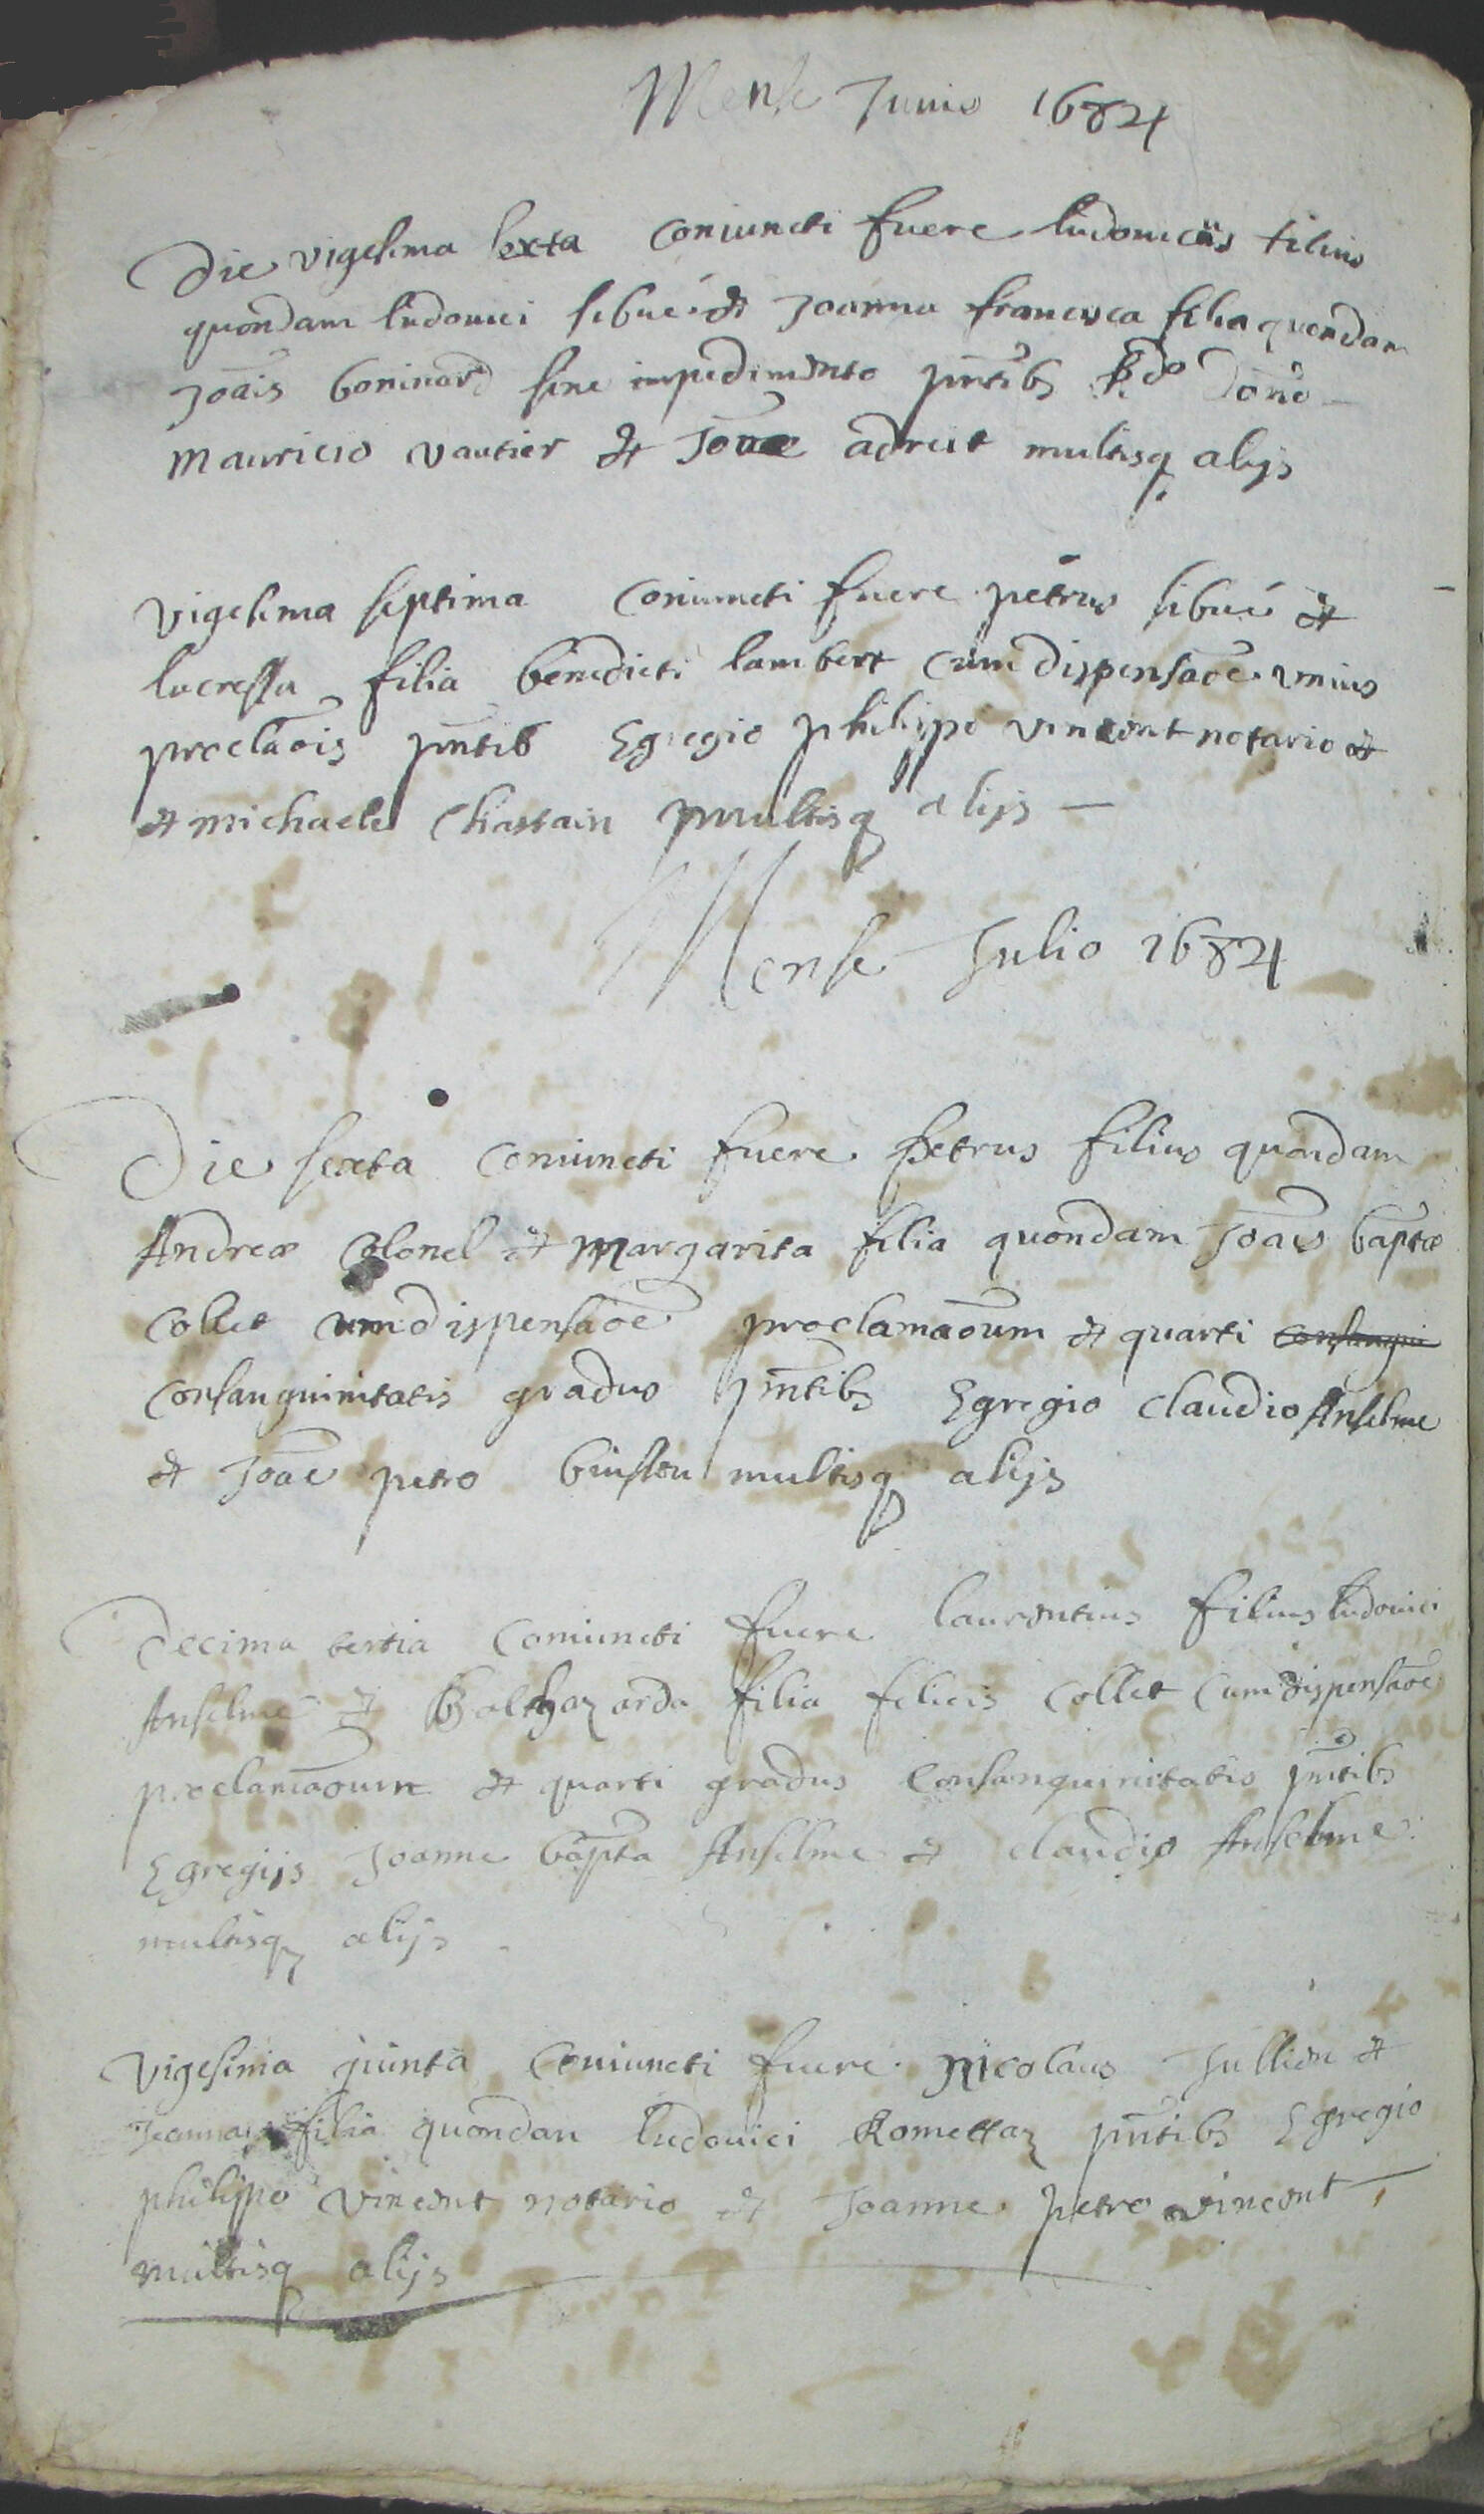 Mense Junio 1684
Die vigesima sexta coniuncti fuere ludovicus filius
quondam ludovici sibué & Joanna francisca filia quondam
Joais boninard sine impedimento pntibs Rdo Dono
Mauricio vautier & Joae adreit multisq alijs
vigesima septima coniuncti fuere petrus sibué &
lucressa filia benedicti lambert cum dispensaoe unius
proclaois pntib Egregio philippo vincent notario &
& michaele Chastain multisq alijs
Mense Julio 1684
Die sexta coniuncti fuere Petrus filius quondam
Andreæ Colonel & Margarita filia quondam Joais baptæ
Collet cum dispensaoe proclamaoum & quarti consangui
consanguinitatis gradus pntibs Egregio Claudio Anselme
& Joae petro multisq alijs
Decima tertia coniuncti fuere laurentius filius ludovici
Anselme & Balthazarda filia felicis Collet cum dispensaoe
proclamaoum & quarti gradus consanguinitatis pntibs
Egregijs Joanne bapta Anselme & claudio Anselme
multisq alijs
vigesima quinta coniuncti fuere Nicolaus Jullien &
Joanna filia quondan ludovici Romettaz pntibs Egregio
philippo vincent notario & Joanne petro vincent
multisq alijs